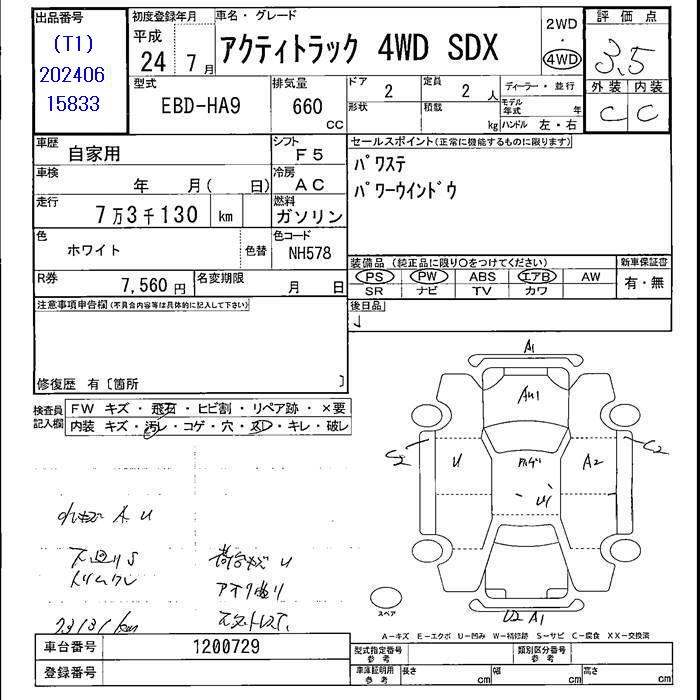 出品番号
(T1)
202406
15833
初度登録年月
平成
24 7月
車名・グレード
アクティトラック 4WD SDX
2WD
・
4WD
評価点
3.5
外装 内装
C C
型式
EBD-HA9
排気量
660
cc
ドア
2
定員
2 人
形状
積載
kg
ディーラー・並行
モデル年式 年
ハンドル 左・右
車歴
自家用
シフト
F5
車検
年 月( 日)
冷房
AC
走行
7万3千130 km
燃料
ガソリン
色
ホワイト
色替
色コード
NH578
R券
7,560円
名変期限
月 日
セールスポイント(正常に機能するものに限ります)
パワステ
パワーウインドウ
装備品 (純正品に限り○をつけてください)
新車保証書
PS PW ABS エアB AW
SR ナビ TV カワ
有・無
後日品
注意事項申告欄(不具合内容等は具体的に記入して下さい)
修復歴 有〔箇所 〕
検査員記入欄
FW キズ・飛石・ヒビ割・リペア跡・×要
内装 キズ・汚レ・コゲ・穴・スレ・キレ・破レ
A U
下回りS
荷台キズ U
73131km
A1
AU1
C2
U
A2
C2
U1
U2 A1
スペア
A-キズ E-エクボ U-凹み W-補修跡 S-サビ C-腐食 XX-交換済
車台番号
1200729
登録番号
型式指定番号
参考
類別区分番号
参考
車庫証明用
参考
長さ cm
幅 cm
高さ cm